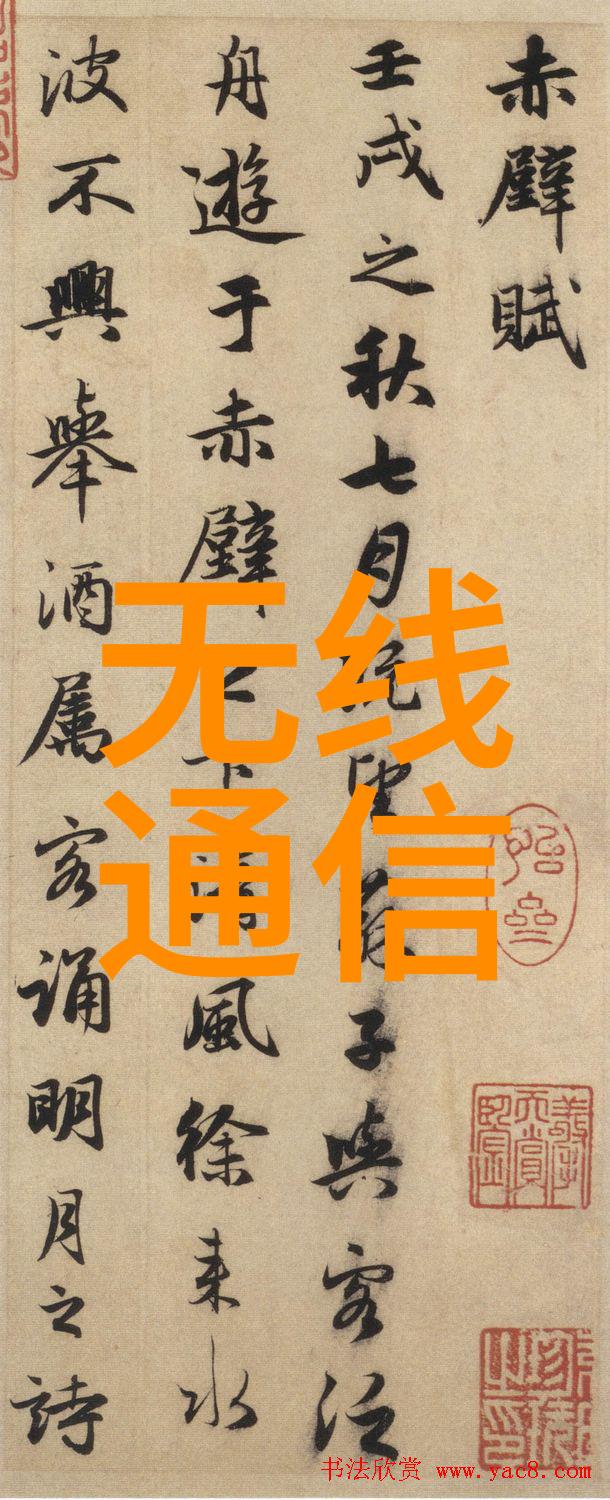 赤壁賦
壬戌之秋七月既望蘇子與客泛
舟遊于赤壁之下清風徐来水
波不興舉酒属客誦明月之詩
无线
通信
书法欣赏 www.yac8.com